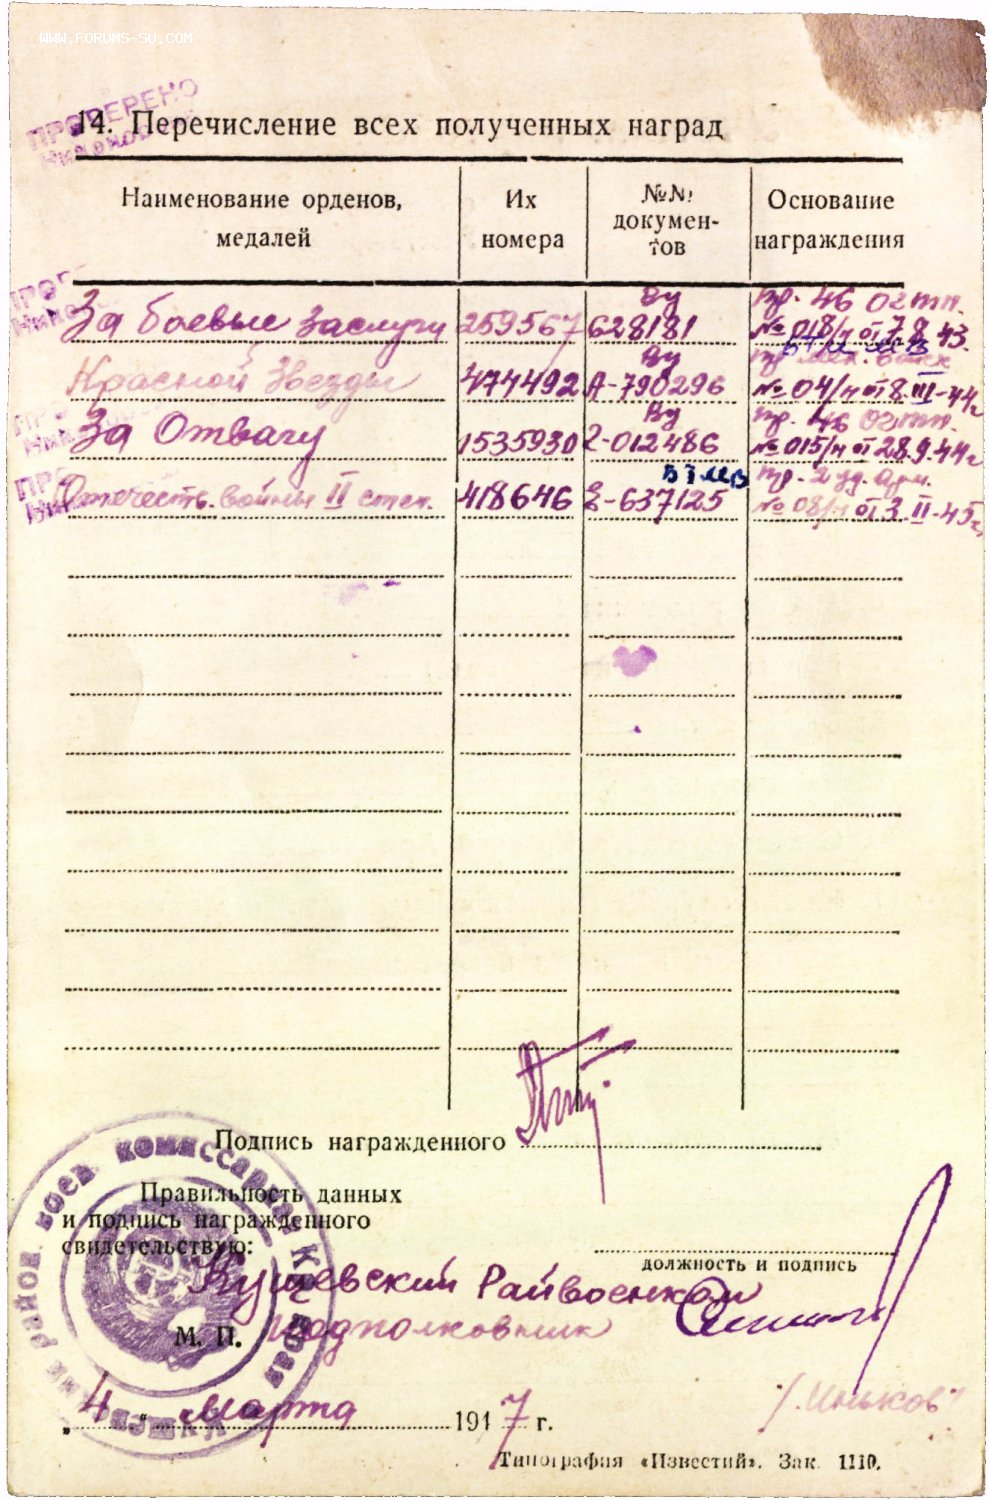 WWW.FORUMS-SU.COM
ПРОВЕРЕНО
14. Перечисление всех полученных наград
Наименование орденов, медалей
Их номера
№№ документов
Основание награждения
За боевые заслуги 259567 Ву 628181 пр. 46 огтп. № 018/н от 7.8.43.
Красной Звезды 474492 Ву А-790296 № 04/н от 8.III-44г
За Отвагу 1535930 Ву Г-012486 пр. 46 огтп. № 015/н от 28.9.44г
Отечеств. войны II степ. 418646 БТ и МВ Е-637125 пр. 2 уд. арм. № 08/н от 3.II-45г.
Подпись награжденного
Правильность данных
и подпись награжденного
свидетельствую:
должность и подпись
Кущевский Райвоенком
М. П. Подполковник
„4“ марта 1947 г.
/Иньков/
Типография «Известий». Зак. 1110.